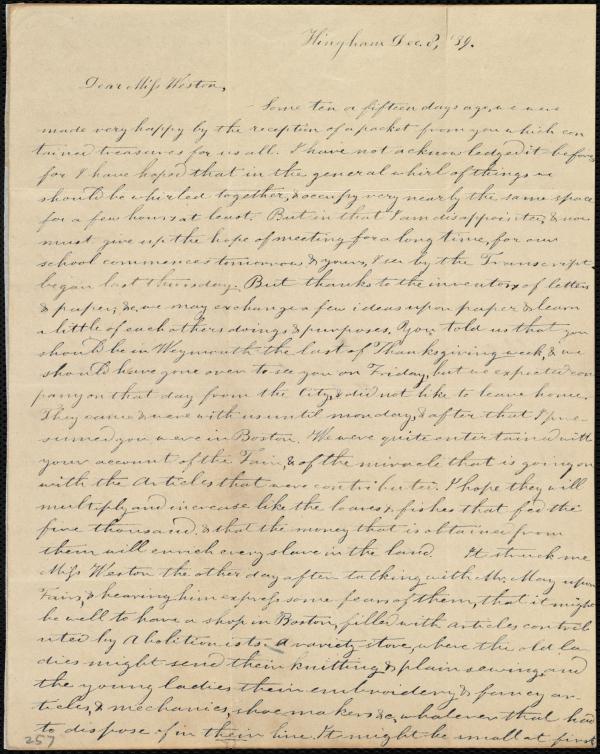 Hingham Dec. 8, '39.
Dear Miss Weston,
Some ten or fifteen days ago, we were
made very happy by the reception of a packet from you which con
tained treasures for us all. I have not acknowledged it before,
for I have hoped that in the general whirl of things we
should be whirled together, & occupy very nearly the same space
for a few hours at least. But in that I am disappointed, & now
must give up the hope of meeting for a long time, for our
school commences tomorrow & yours, I see by the Transcript,
began last thursday. But thanks to the inventors of letters
& paper, &c, we may exchange a few ideas upon paper & learn
a little of each others doings & purposes. You told us that you
should be in Weymouth the last of Thanksgiving week, & we
should have gone over to see you on Friday, but we expected com
pany on that day from the city, & did not like to leave home.
They came & were with us until monday, & after that I pre-
sumed you were in Boston. We were quite entertained with
your account of the Fair, & of the miracle that is going on
with the articles that were contributed. I hope they will
multiply and increase like the loaves & fishes that fed the
five thousand, & that the money that is obtained from
them will enrich every slave in the land. It struck me
Miss Weston the other day after talking with Mr. May upon
Fairs, & hearing him express some fears of them, that it might
be well to have a shop in Boston, filled with articles contrib
uted by Abolitionists. A variety store, where the old la-
dies might send their knitting & plain sewing, and
the young ladies their embroidery & fancy ar-
ticles, & mechanics, shoe makers &c, whatever they had
to dispose of in their line. It might be small at first
257